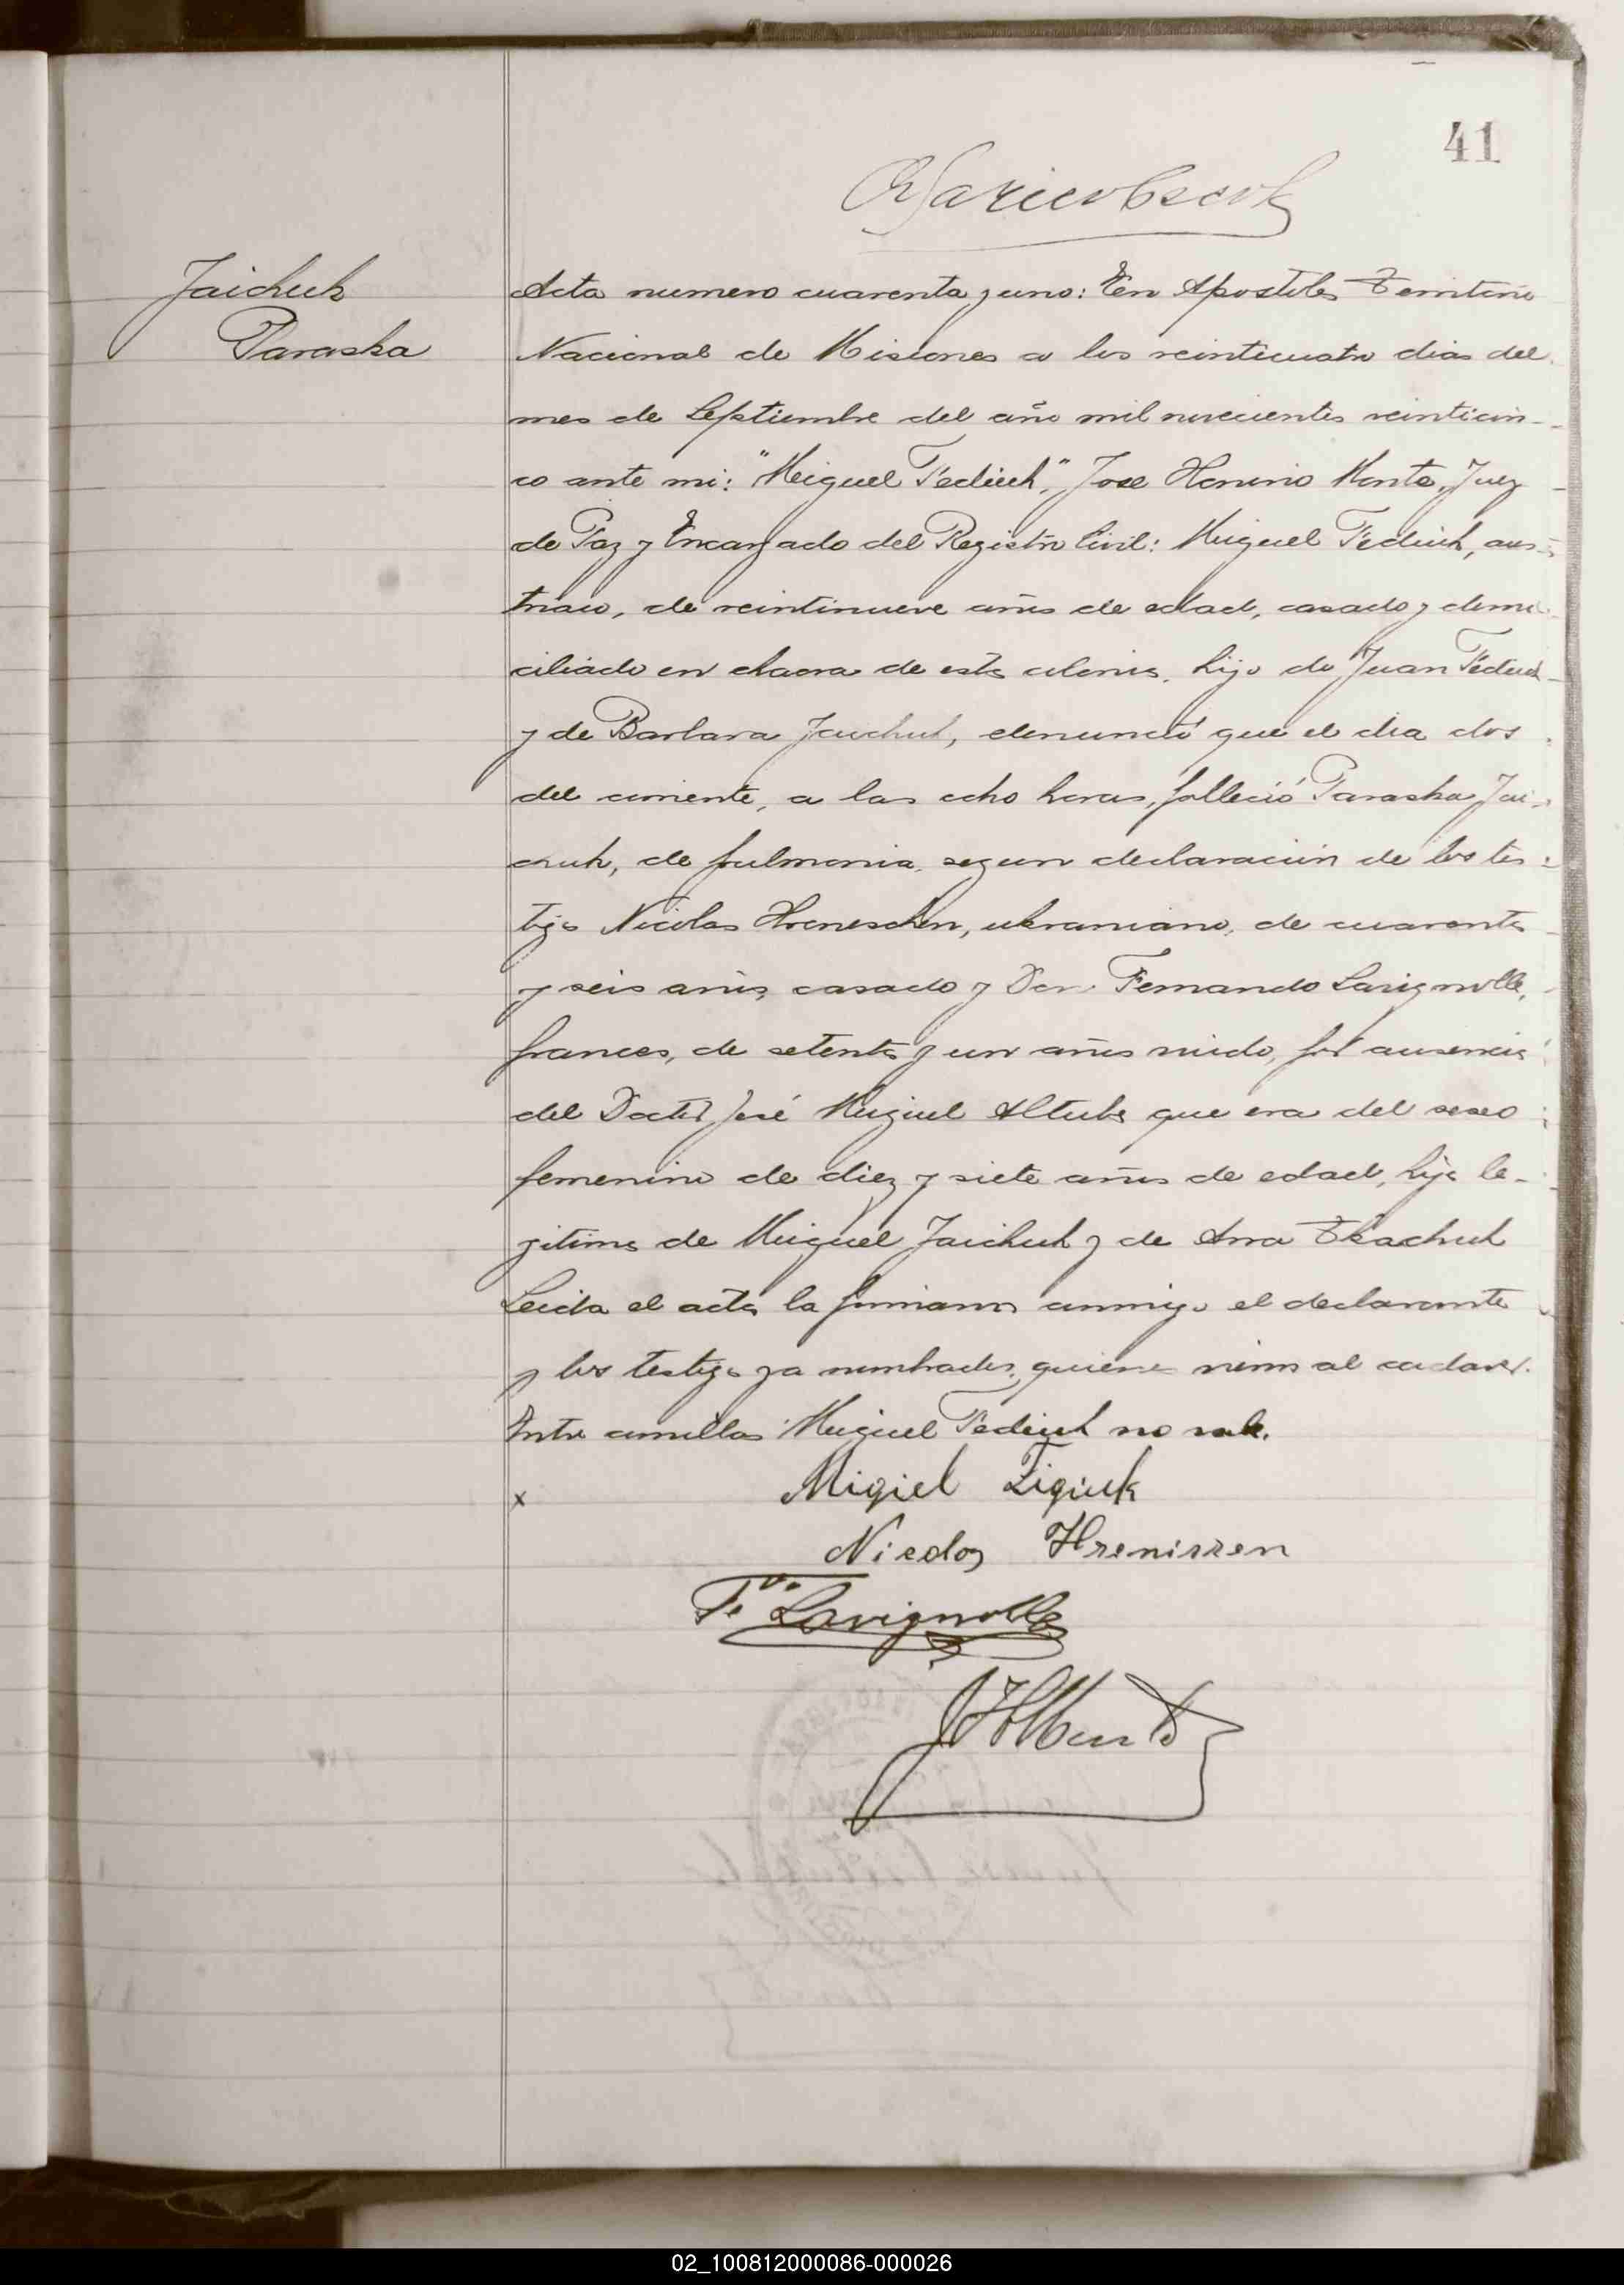 41
Jaichuk
Paraska
Acta numero cuarenta y uno: En Apostoles Territorio
Nacional de Misiones a los veinticuatro dias del
mes de Septiembre del año mil novecientos veinticin-
co ante mi: "Miguel Fediuk", Jose Honorio Monte, Juez
de Paz y Encargado del Registro Civil: Miguel Fediuk, aus-
triaco, de veintinueve años de edad, casado y domi-
ciliado en chacra de esta colonia, hijo de Juan Fediuk
y de Barbara Jaichuk, denunció que el dia dos
del corriente, a las ocho horas, falleció Paraska Jai-
chuk, de pulmonia, segun declaracion de los tes-
tigos Nicolas Hreneschen, ukraniano, de cuarenta
y seis años, casado y Don Fernando Lavignolle,
frances, de setenta y un años viudo, por ausencia
del Doctor José Miguel Altube que era del sexo
femenino de diez y siete años de edad, hija le-
gitima de Miguel Jaichuk y de Ana Tkachuk
Leida el acta la firmaron conmigo el declarante
y los testigos ya nombrados, quienes vieron al cadaver.
Entre comillas Miguel Fediuk no vale.
x Migiel Figiuk
Nicolas Hrenissen
Fdo Lavignolle
JHMonte
02_100812000086-000026